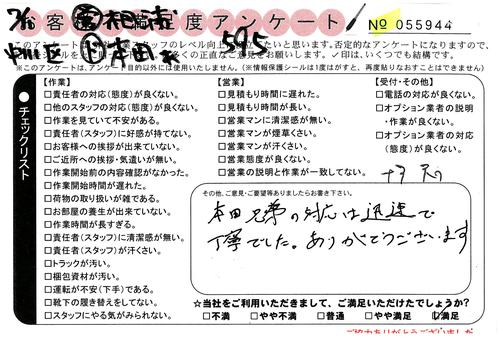 お客様満足度アンケート
No 055944
本田
595
※このアンケートは、アンケート目的以外には使用いたしません。（※情報保護シールは1度はがすと、再度貼りなおすことはできません）
チェックリスト
【作業】
□責任者の対応(態度)が良くない。
□他のスタッフの対応(態度)が良くない。
□作業を見ていて不安がある。
□責任者(スタッフ)に好感が持てない。
□お客様への挨拶が出来ていない。
□ご近所への挨拶・気遣いが無い。
□作業開始前の内容確認がなかった。
□作業開始時間が遅れた。
□荷物の取り扱いが雑である。
□お部屋の養生が出来ていない。
□作業時間が長すぎる。
□責任者(スタッフ)に清潔感が無い。
□責任者(スタッフ)が汗くさい。
□トラックが汚い。
□梱包資材が汚い。
□運転が安全(下手)である。
□靴下の履き替えをしてない。
□スタッフにやる気がみられない。
【営業】
□見積もり時間に遅れた。
□見積もり時間が長い。
□営業マンに清潔感が無い。
□営業マンが煙草くさい。
□営業マンが汗くさい。
□営業態度が良くない。
□営業の説明と作業が一致してない。
【受付・その他】
□電話の対応が良くない。
□オプション業者の説明
・作業が良くない。
□オプション業者の対応
(態度)が良くない。
その他、ご意見・ご要望等ありましたらお書き下さい。
本田兄弟の対応は迅速で
丁寧でした。ありがとうございます
☆当社をご利用いただきまして、ご満足いただけたでしょうか？
□不満 □やや不満 □普通 □やや満足 ☑満足
ご協力ありがとうございました